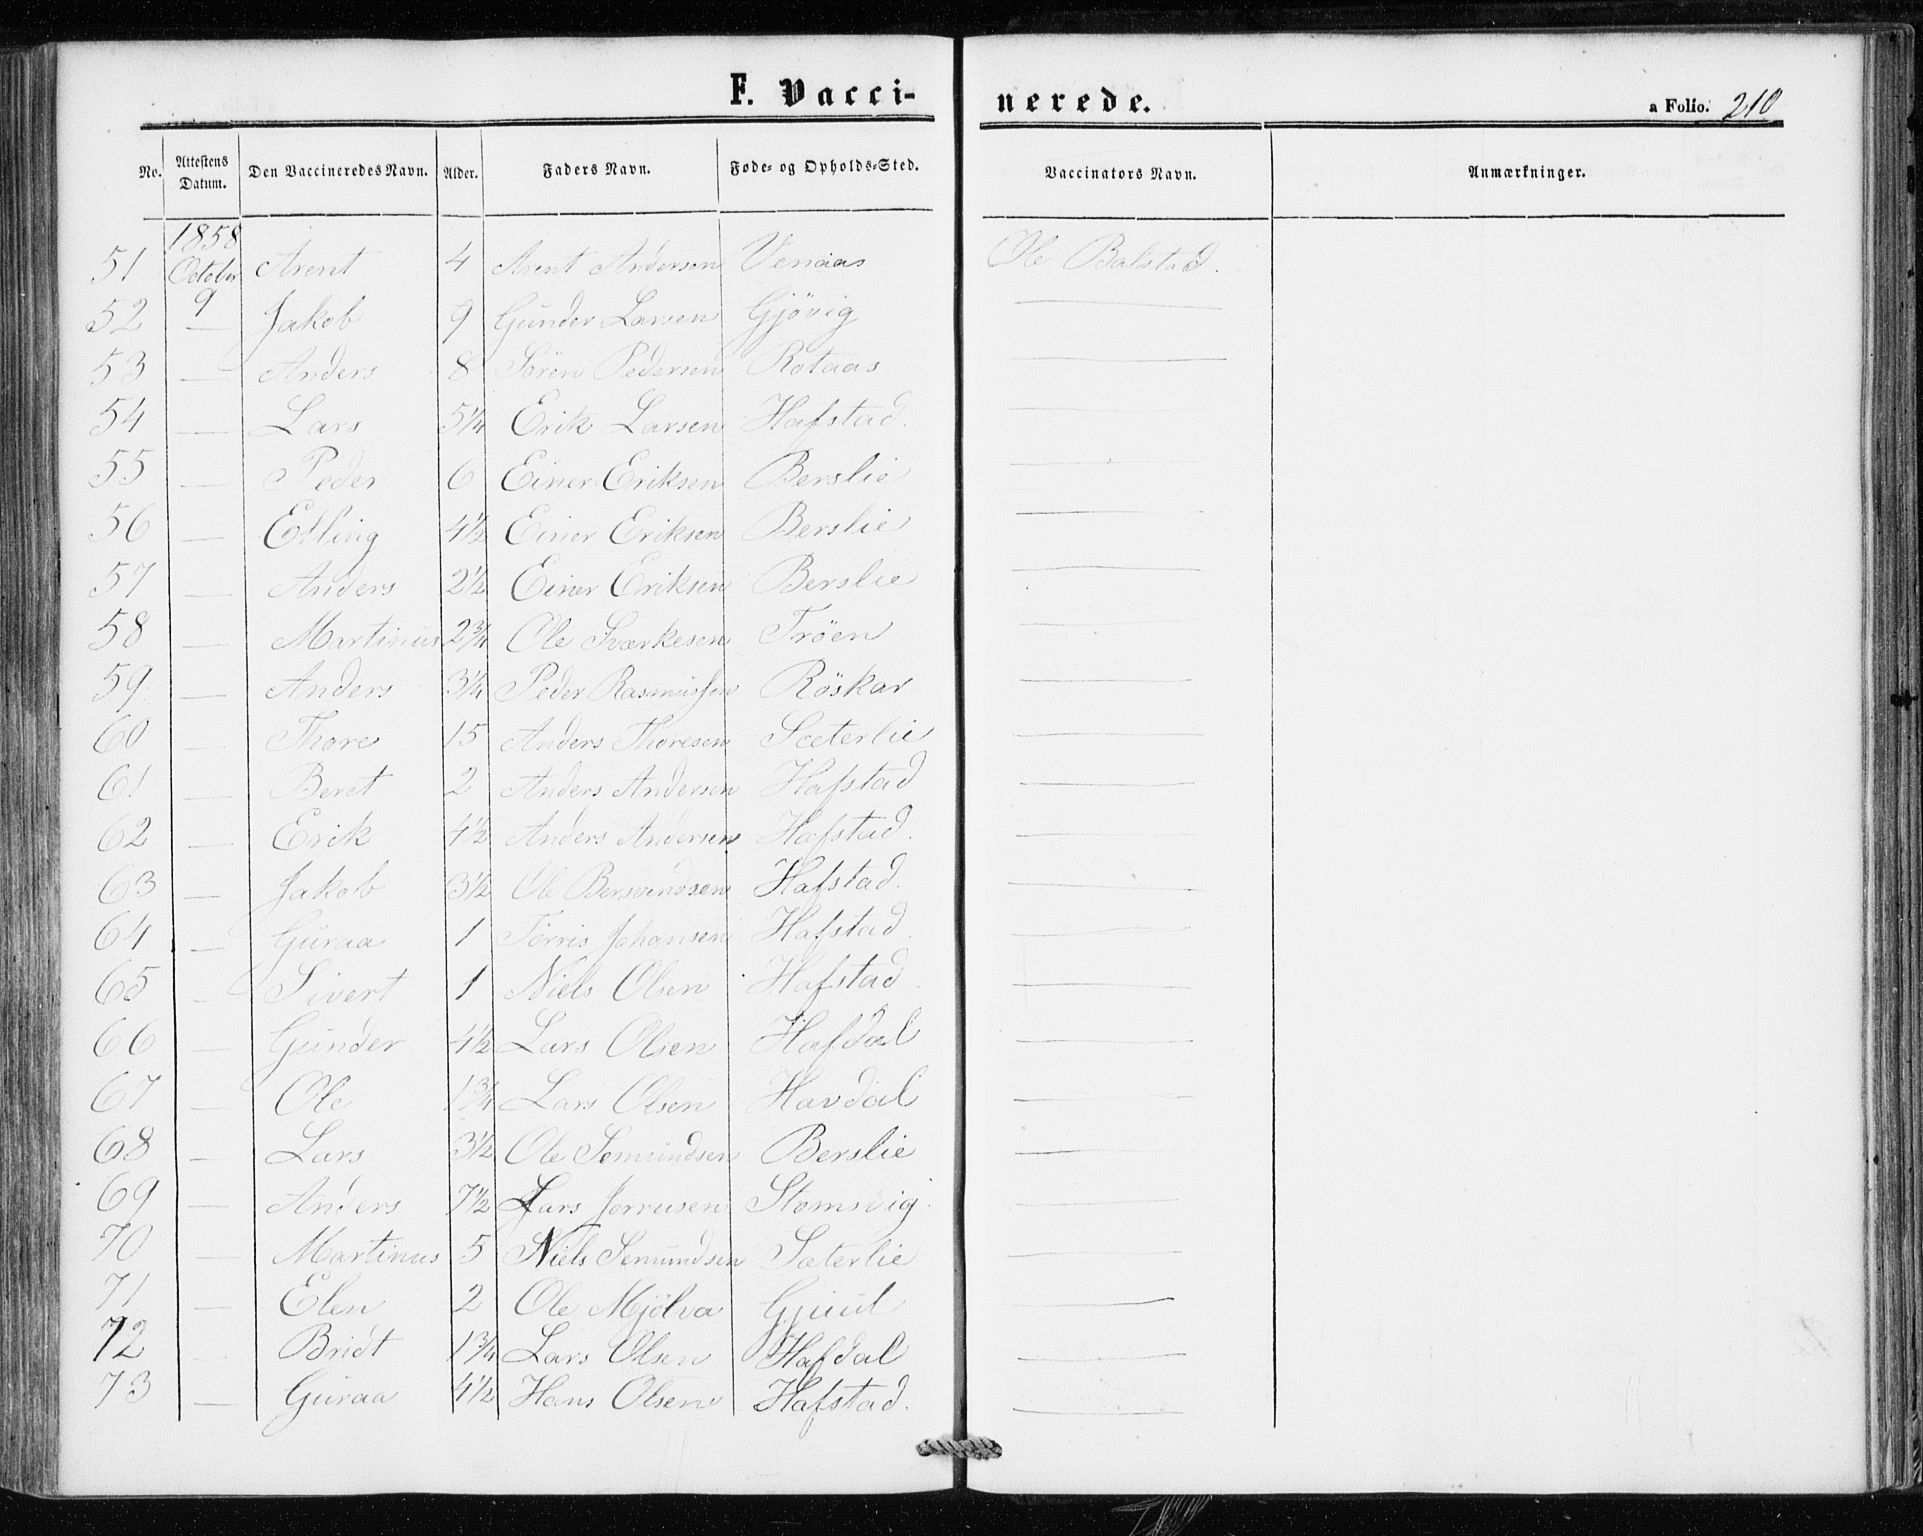 F. Vacci-
nerede.
a Folio. 210
No. Attestens Datum. Den Vaccineredes Navn. Alder. Faders Navn. Føde- og Opholds-Sted. Vaccinators Navn. Anmærkninger.
1858
51 October 9 Arent 4 Arent Andersen Venaas Ole Balstad.
52 — Jakob 9 Gunder Larsen Gjövig —
53 — Anders 8 Sören Pedersen Rotaas —
54 — Lars 5¼ Erik Larsen Hafstad. —
55 — Peder 6 Einer Eriksen Berslie —
56 — Elling 4½ Einer Eriksen Berslie —
57 — Anders 2½ Einer Eriksen Berslie —
58 — Martinus 2¾ Ole Sværkesen Tröen —
59 — Anders 3¼ Peder Rasmussen Röskar —
60 — Thore 15 Anders Thoresen Sæterlie —
61 — Beret 2 Anders Andersen Hafstad —
62 — Erik 4½ Anders Andersen Hafstad. —
63 — Jakob 3½ Ole Bersvendsen Hafstad. —
64 — Guraa 1 Torris Johansen Hafstad. —
65 — Sivert 1 Niels Olsen Hafstad. —
66 — Gunder 4½ Lars Olsen Hafdal —
67 — Ole 1¾ Lars Olsen Havdal —
68 — Lars 3½ Ole Semundsen Berslie —
69 — Anders 7½ Lars Jorrusen Stomsvig. —
70 — Martinus 5 Niels Semundsen Sæterlie —
71 — Elen 2 Ole Mjölva —
72 — Bridt 1¾ Lars Olsen Hafdal —
73 — Guraa 4½ Hans Olsen Hafstad. —